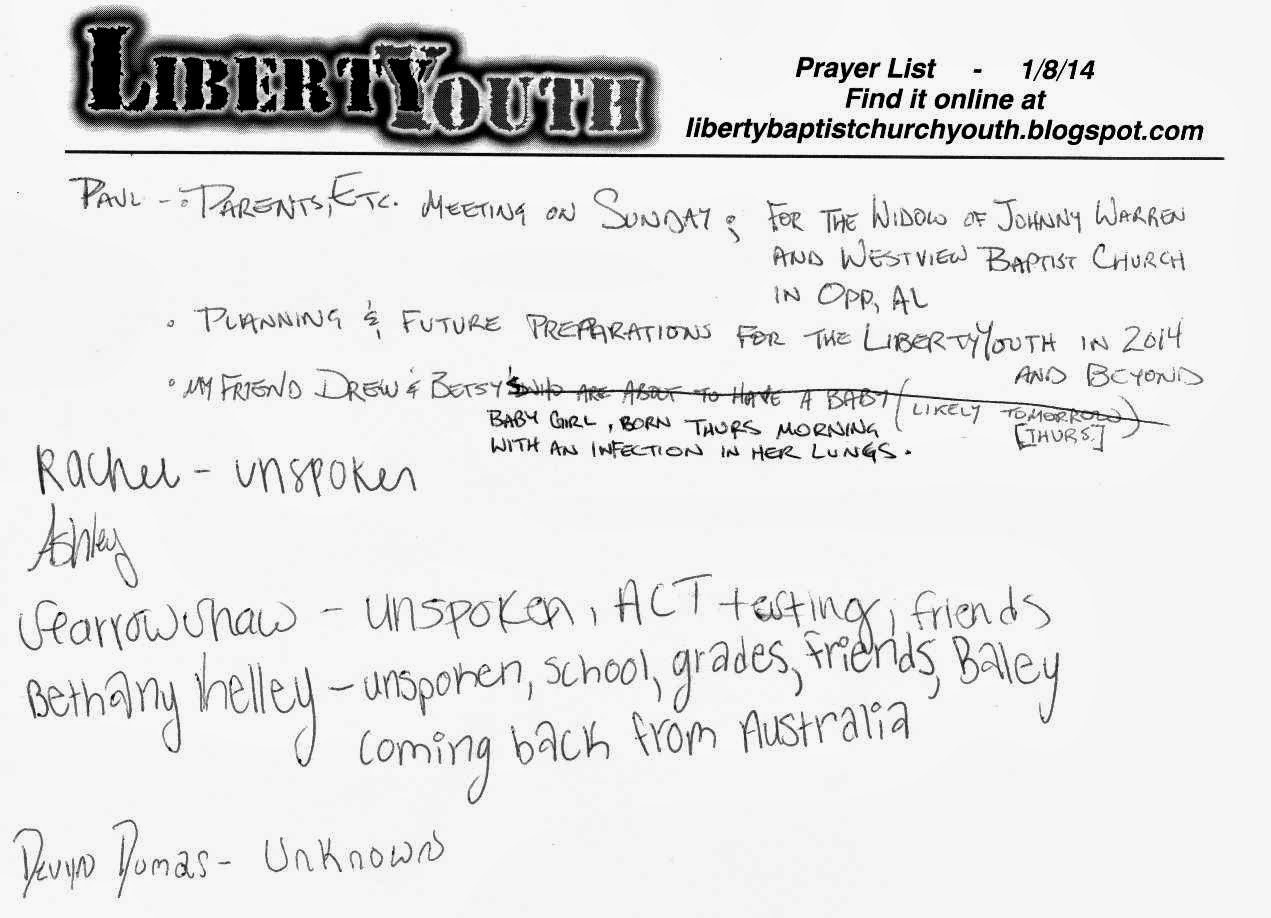 LIBERTYYOUTH
Prayer List - 1/8/14
Find it online at
libertybaptistchurchyouth.blogspot.com
PAUL - • PARENTS, ETC. MEETING ON SUNDAY; FOR THE WIDOW OF JOHNNY WARREN
AND WESTVIEW BAPTIST CHURCH
IN OPP, AL
• PLANNING & FUTURE PREPARATIONS FOR THE LIBERTYYOUTH IN 2014
AND BEYOND
• MY FRIEND DREW & BETSY'S WHO ARE ABOUT TO HAVE A BABY (LIKELY TOMORROW)
[THURS.]
BABY GIRL, BORN THURS MORNING
WITH AN INFECTION IN HER LUNGS.
Rachel - unspoken
Ashley
- unspoken, ACT testing, friends
Bethany Kelley - unspoken, school, grades, friends, Baley
coming back from Australia
Devyn Dumas - Unknown